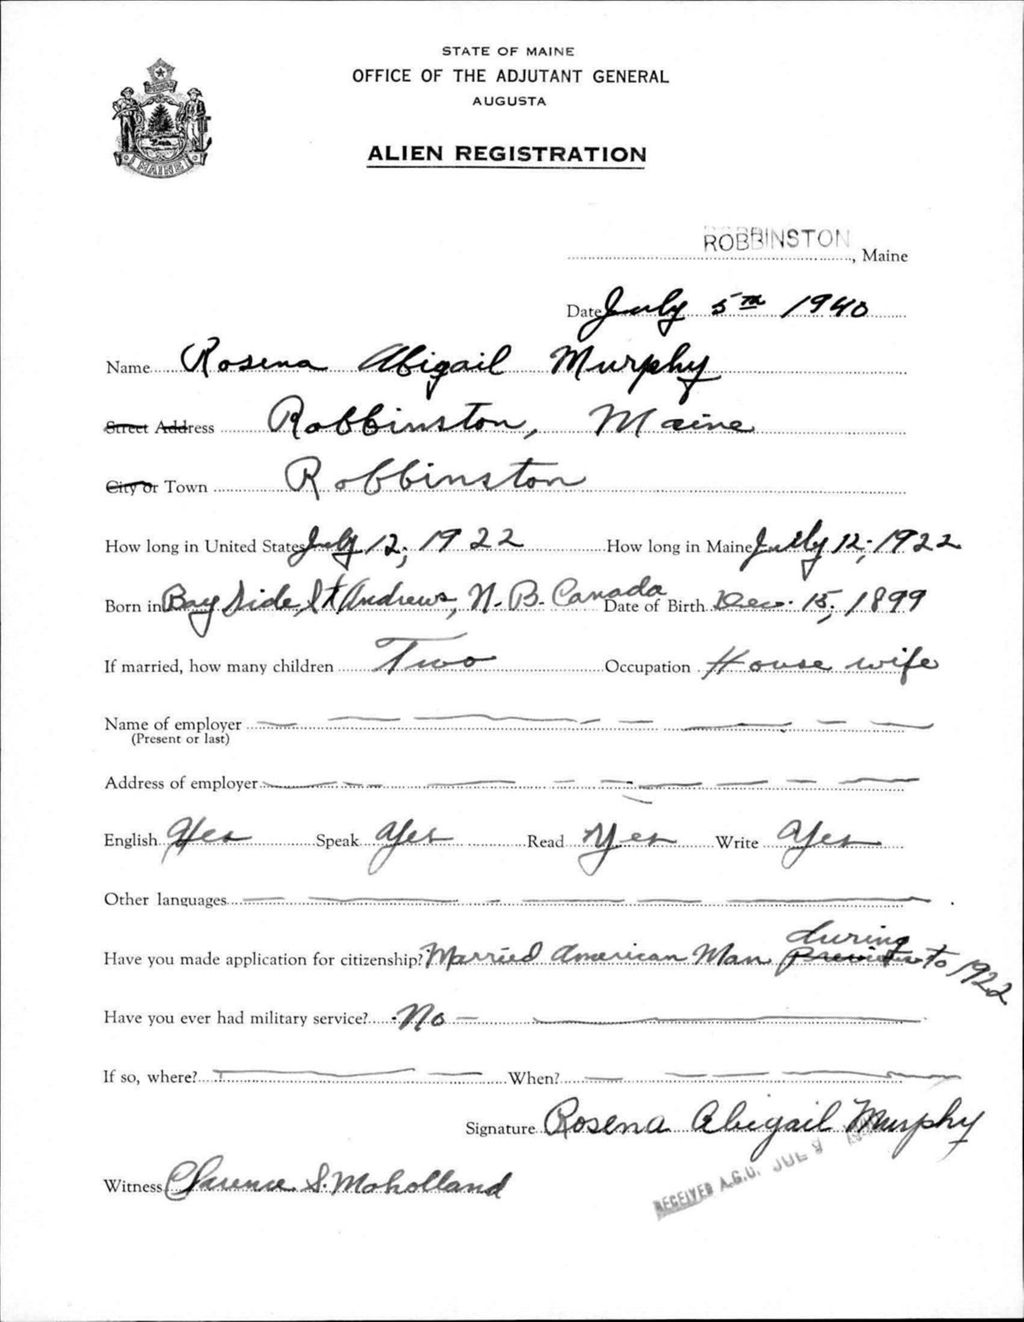 STATE OF MAINE
OFFICE OF THE ADJUTANT GENERAL
AUGUSTA
ALIEN REGISTRATION
MAINE
ROBBINSTON, Maine
Date July 5th 1940
Name Rosena Abigail Murphy
Street Address Robbinston, Maine
City or Town Robbinston
How long in United States July 12, 1922 How long in Maine July 12, 1922
Born in Bay Side, St Andrews, N.B. Canada Date of Birth Dec. 15, 1899
If married, how many children Two Occupation House wife
Name of employer
(Present or last)
Address of employer
English Yes Speak Yes Read Yes Write Yes
Other languages
during
Have you made application for citizenship? Married American Man to 1922
Have you ever had military service? No
If so, where? When?
Signature Rosena Abigail Murphy
Witness Clarence S. Moholland
RECEIVED A.G.O. JUL 9